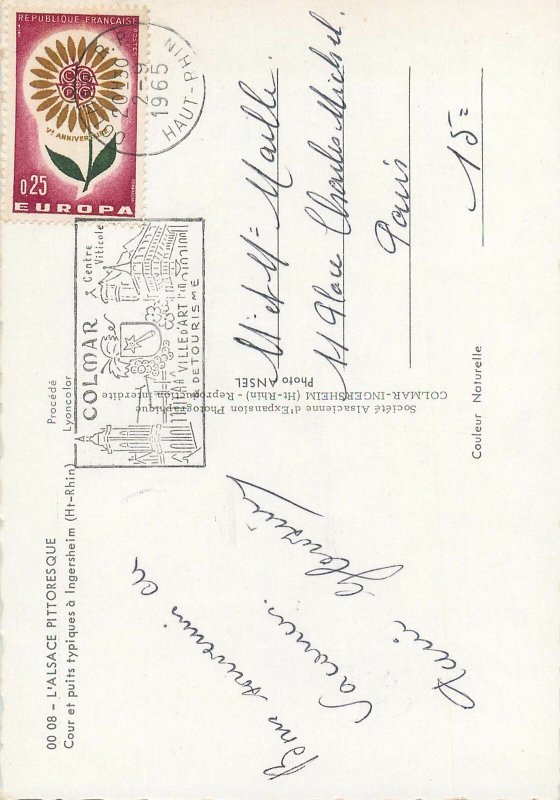 00 08 - L'ALSACE PITTORESQUE
Cour et puits typiques à Ingersheim (Ht-Rhin)
Procédé
Lyoncolor
Bons souvenirs de
Vacances.
Société Alsacienne d'Expansion Photographique
COLMAR-INGERSHEIM (Ht-Rhin) - Reproduction interdite
Photo ANSEL
Couleur Naturelle
REPUBLIQUE FRANÇAISE
POSTES
CEPT
Vᵉ ANNIVERSAIRE
0,25
EUROPA
COLMAR
20H30
2-9
1965
HAUT-RHIN
COLMAR
Centre
Viticole
VILLE D'ART
DE TOURISME
M. et Mᵐᵉ Maille
11 Place Charles Michel.
Paris
15ᵉ